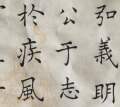 弘義明
公于志
於疾風